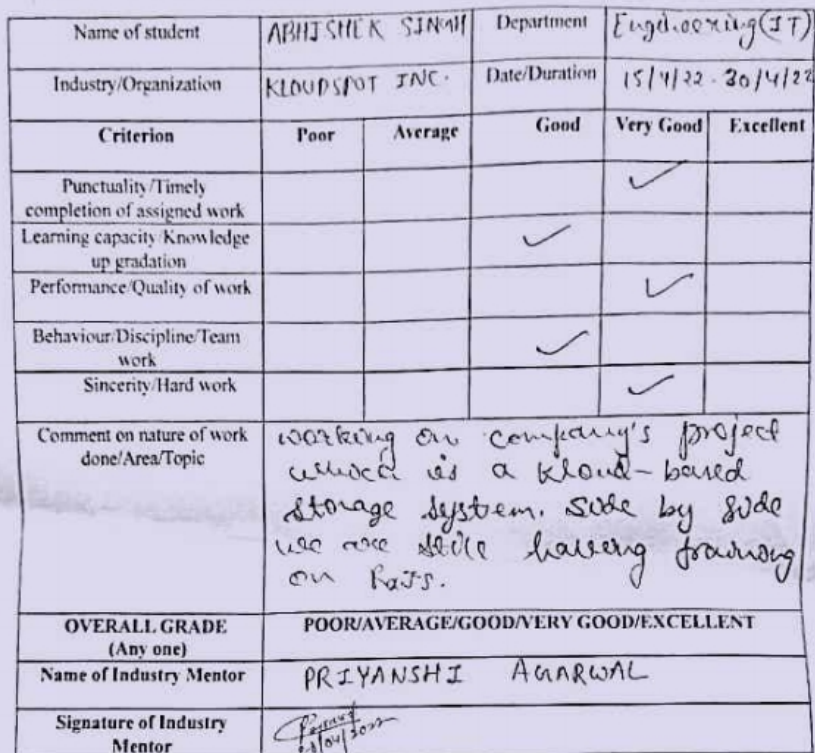 Name of student ABHISHEK SINGH Department Engineering(IT)
Industry/Organization KLOUDSPOT INC. Date/Duration 15/4/22 - 30/4/22
Criterion Poor Average Good Very Good Excellent
Punctuality/Timely
completion of assigned work ✓
Learning capacity/Knowledge
up gradation ✓
Performance/Quality of work ✓
Behaviour/Discipline/Team
work ✓
Sincerity/Hard work ✓
Comment on nature of work
done/Area/Topic
working on company's project
which is a kloud-based
storage system. Side by side
we are still having training
on
OVERALL GRADE
(Any one)
POOR/AVERAGE/GOOD/VERY GOOD/EXCELLENT
Name of Industry Mentor PRIYANSHI AGARWAL
Signature of Industry
Mentor
/04/2022